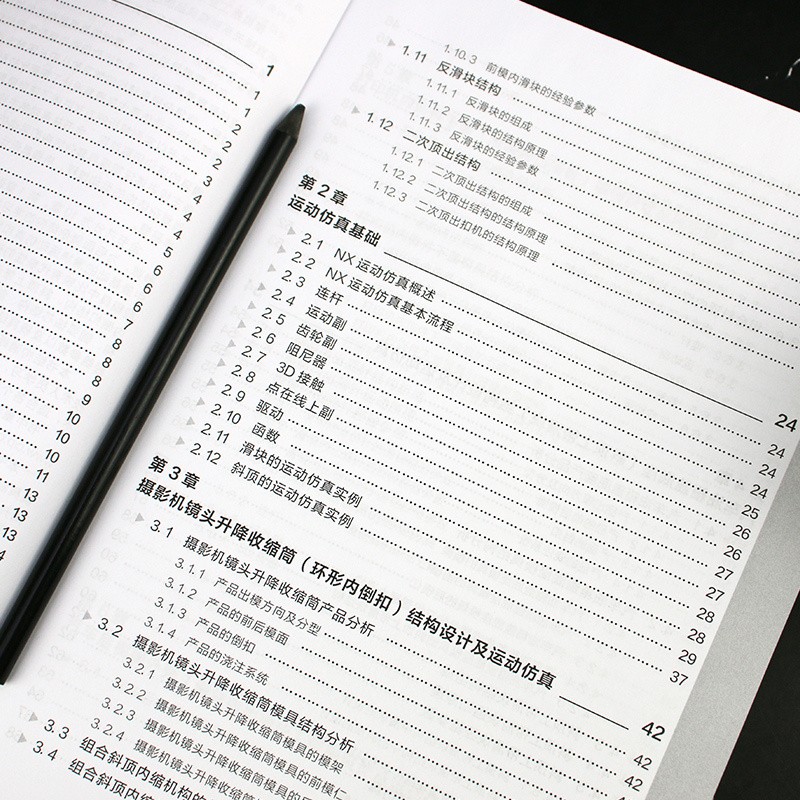 1
1
1
2
2
2
3
3
4
4
4
5
5
6
6
6
7
8
8
9
10
10
10
11
13
13
13
1.10.3 前模内滑块的经验参数
1.11 反滑块结构
1.11.1 反滑块的组成
1.11.2 反滑块的结构原理
1.11.3 反滑块的经验参数
1.12 二次顶出结构
1.12.1 二次顶出结构的组成
1.12.2 二次顶出结构的结构原理
1.12.3 二次顶出扣机的结构原理
第 2 章
运动仿真基础 24
2.1 NX 运动仿真概述 24
2.2 NX 运动仿真基本流程 24
2.3 连杆 24
2.4 运动副 25
2.5 齿轮副 26
2.6 阻尼器 26
2.7 3D 接触 27
2.8 点在线上副 27
2.9 驱动 28
2.10 函数 28
2.11 滑块的运动仿真实例 29
2.12 斜顶的运动仿真实例 37
第 3 章
摄影机镜头升降收缩筒（环形内倒扣）结构设计及运动仿真 42
3.1 摄影机镜头升降收缩筒产品分析 42
3.1.1 产品出模方向及分型 42
3.1.2 产品的前后模面
3.1.3 产品的倒扣
3.1.4 产品的浇注系统
3.2 摄影机镜头升降收缩筒模具结构分析
3.2.1 摄影机镜头升降收缩筒模具的模架
3.2.2 摄影机镜头升降收缩筒模具的前模仁
3.2.3 摄影机镜头升降收缩筒模具的
3.2.4 摄影机镜头升降收缩筒
3.3 组合斜顶内缩机构的
3.4 组合斜顶内缩